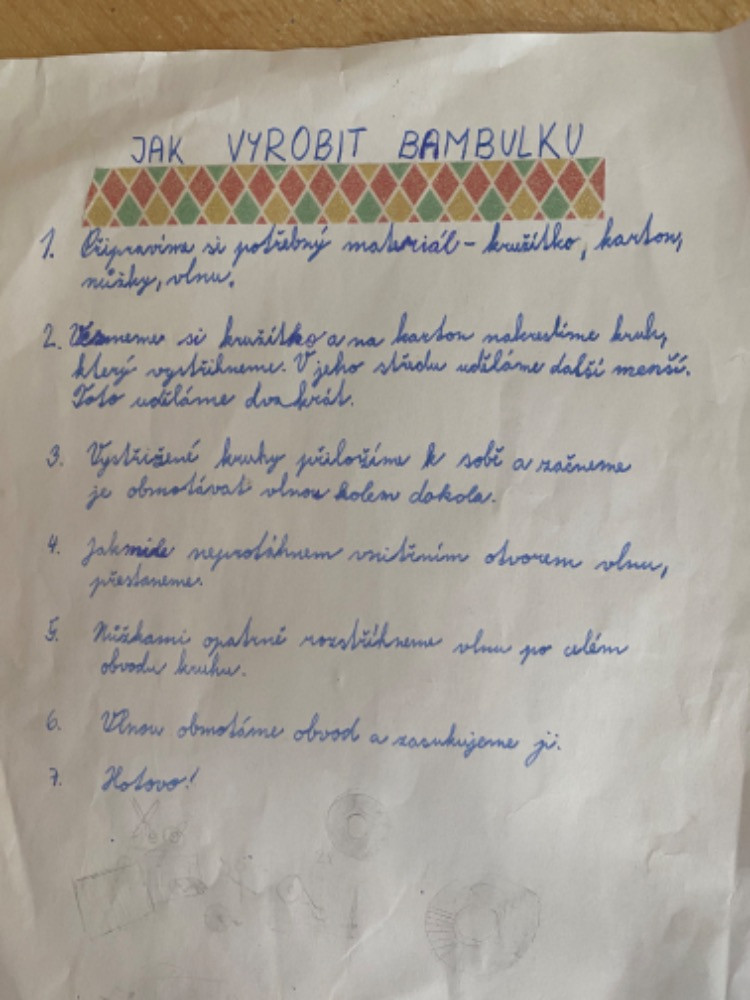 JAK VYROBIT BAMBULKU
1. Připravíme si potřebný materiál - kružítko, karton,
nůžky, vlnu.
2. Vezmeme si kružítko a na karton nakreslíme kruh,
který vystřihneme. V jeho středu uděláme další menší.
Toto uděláme dvakrát.
3. Vystřižené kruhy přiložíme k sobě a začneme
je obmotávat vlnou kolem dokola.
4. Jakmile neprotáhnem vnitřním otvorem vlnu,
přestaneme.
5. Nůžkami opatrně rozstřihneme vlnu po celém
obvodu kruhu.
6. Vlnou obmotáme obvod a zasukujeme ji.
7. Hotovo!